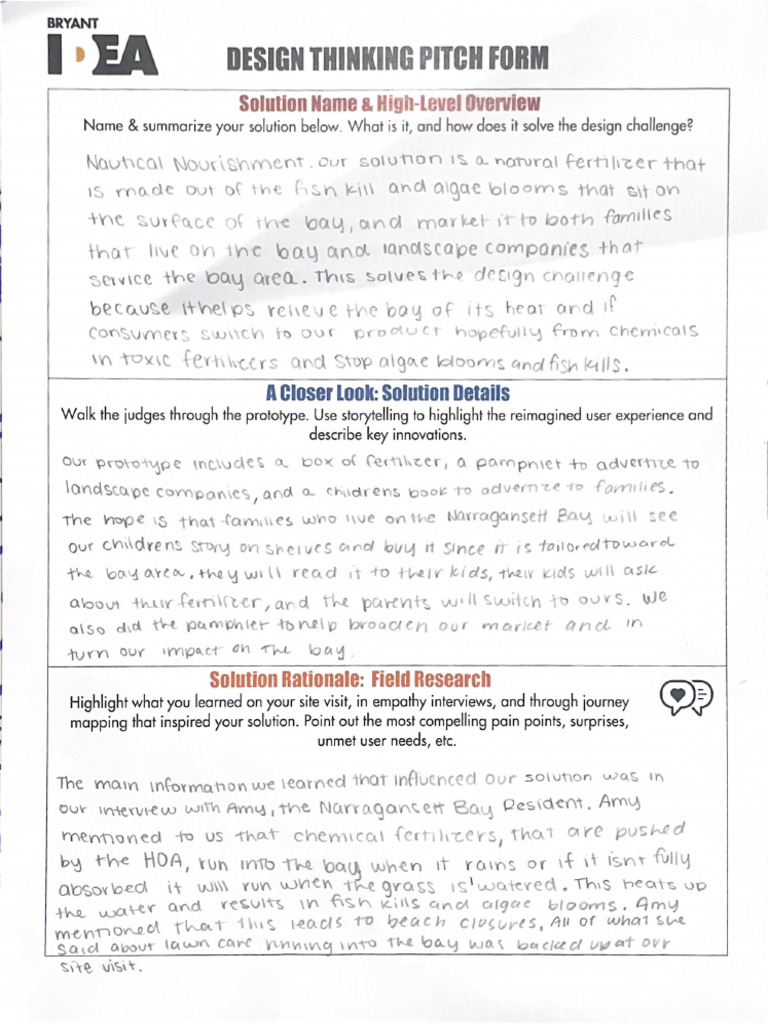 BRYANT
IDEA
DESIGN THINKING PITCH FORM
Solution Name & High-Level Overview
Name & summarize your solution below. What is it, and how does it solve the design challenge?
Nautical Nourishment. our solution is a natural fertilizer that
is made out of the fish kill and algae blooms that sit on
the surface of the bay, and market it to both families
that live on the bay and landscape companies that
service the bay area. This solves the design challenge
because it helps relieve the bay of its heat and if
consumers switch to our product hopefully from chemicals
in toxic fertilizers and stop algae blooms and fish kills.
A Closer Look: Solution Details
Walk the judges through the prototype. Use storytelling to highlight the reimagined user experience and
describe key innovations.
our prototype includes a box of fertilizer, a pamphlet to advertize to
landscape companies, and a childrens book to advertize to families.
The hope is that families who live on the Narragansett Bay will see
our childrens story on shelves and buy it since it is tailored toward
the bay area. they will read it to their kids, their kids will ask
about their fertilizer, and the parents will switch to ours. we
also did the pamphlet to help broaden our market and in
turn our impact on the bay.
Solution Rationale: Field Research
Highlight what you learned on your site visit, in empathy interviews, and through journey
mapping that inspired your solution. Point out the most compelling pain points, surprises,
unmet user needs, etc.
The main information we learned that influenced our solution was in
our interview with Amy, the Narragansett Bay Resident. Amy
mentioned to us that chemical fertilizers, that are pushed
by the HOA, run into the bay when it rains or if it isnt fully
absorbed it will run when the grass is watered. This heats up
the water and results in fish kills and algae blooms. Amy
mentioned that this leads to beach closures. All of what she
said about lawn care running into the bay was backed up at our
site visit.